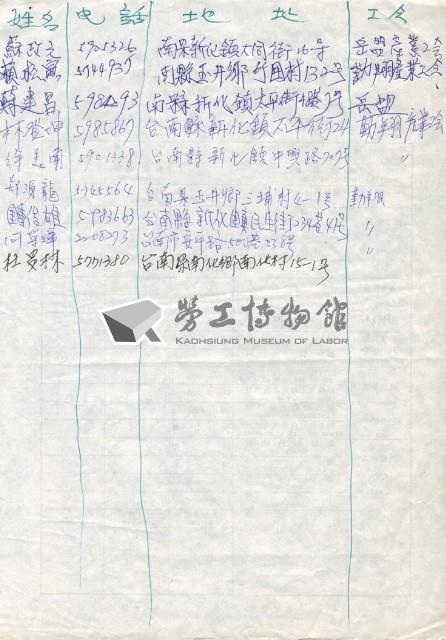 姓名 電話 地址 工会
蘇改之 5905326 南縣新化鎮大同街16号 岳盟產業工会
松 5744937 南縣玉井鄉竹囲村132号 勤翔產業工会
蘇建昌 5984293 南縣新化鎮太平街 号 岳盟
林 坤 5985867 台南縣新化鎮太平街24 勤翔產業工会
徐 南 5901338 台南縣新化鎮中興路 号 〃
鄭源龍 5745564 台南縣玉井鄉三埔村4-1号 勤翔
鍾俊雄 5983663 台南縣新化鎮民生街234巷4号 〃
河 2008293 台南市安平路500巷238号 〃
杜 林 5771380 台南縣南化鄉南化村15-1号
勞工博物館
KAOHSIUNG MUSEUM OF LABOR